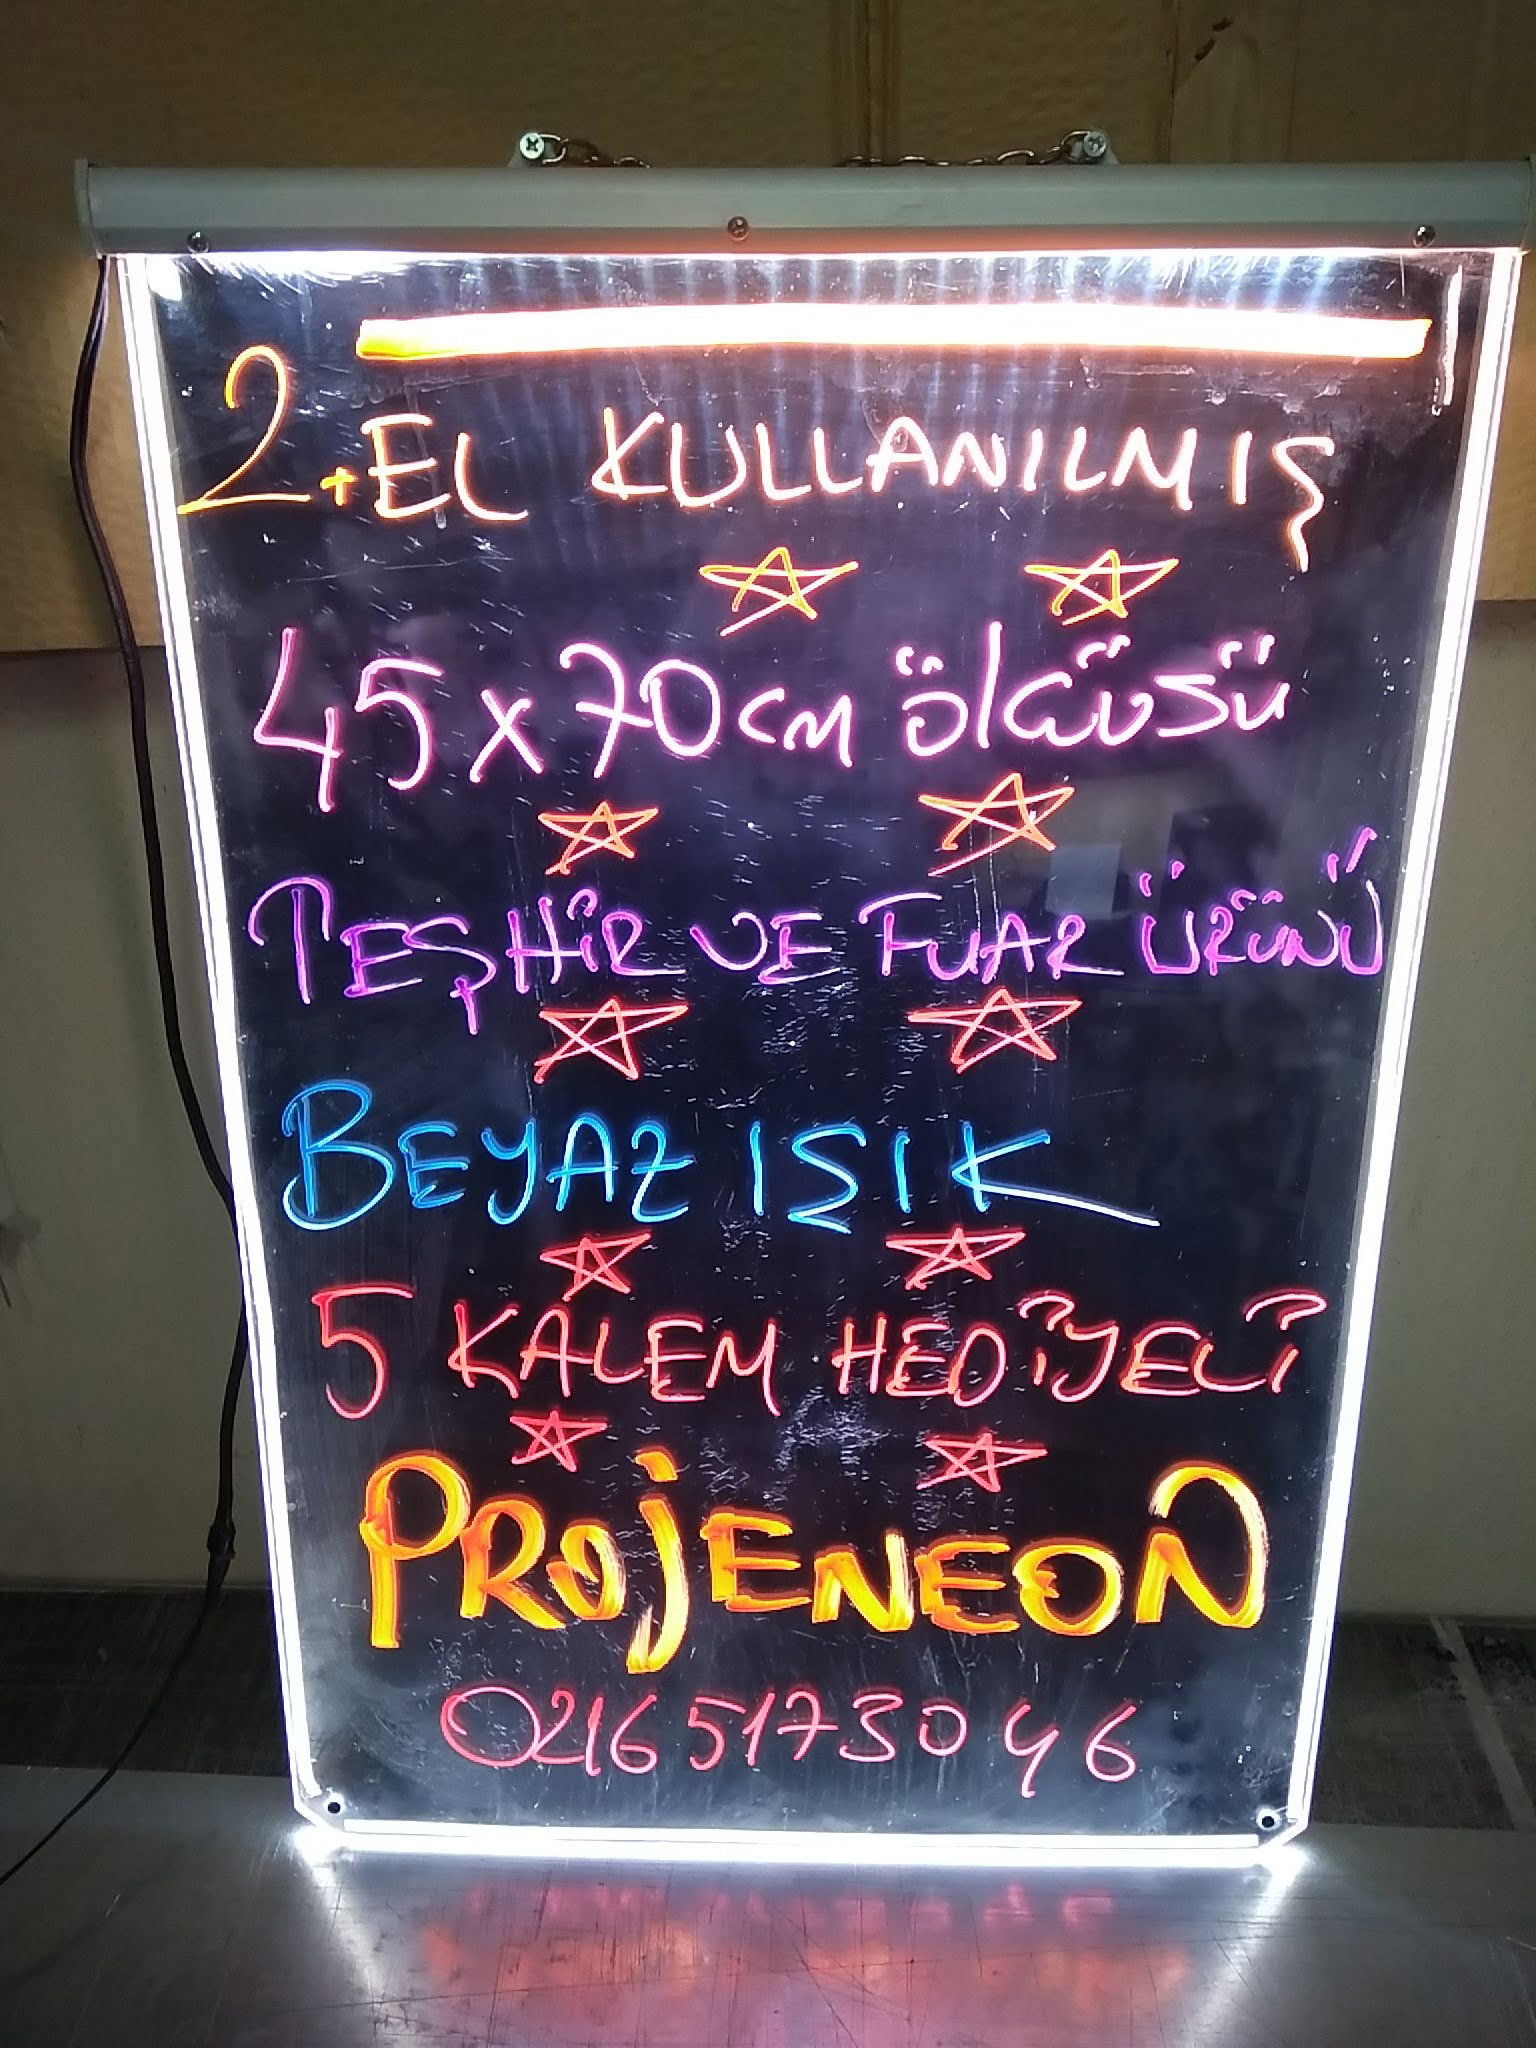 2.EL KULLANILMIŞ
45x70cm ölçüsü
TEŞHİR VE FUAR ÜRÜNÜ
BEYAZ IŞIK
5 KALEM HEDİYELİ
PROJENEON
0216 5173046